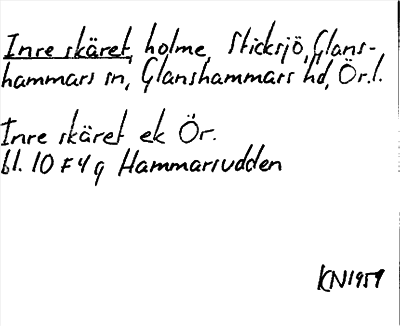 Inre skäret, holme, Sticksjö, Glans-
hammars sn, Glanshammars hd, Ör.l.
Inre skäret ek Ör.
bl. 10 F 4 g Hammarsudden
KN1959